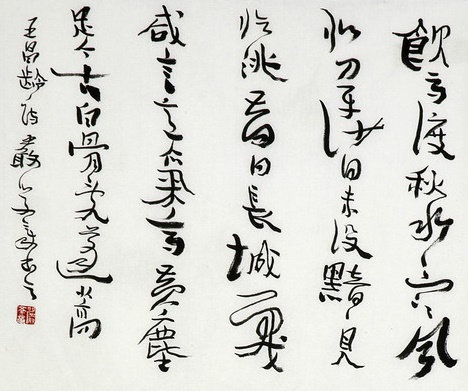 飲馬渡秋水水寒風
似刀平沙日未没黯黯見
臨洮昔日長城戰
咸言意氣高黄塵
足今古白骨亂蓬蒿
王昌齡詩